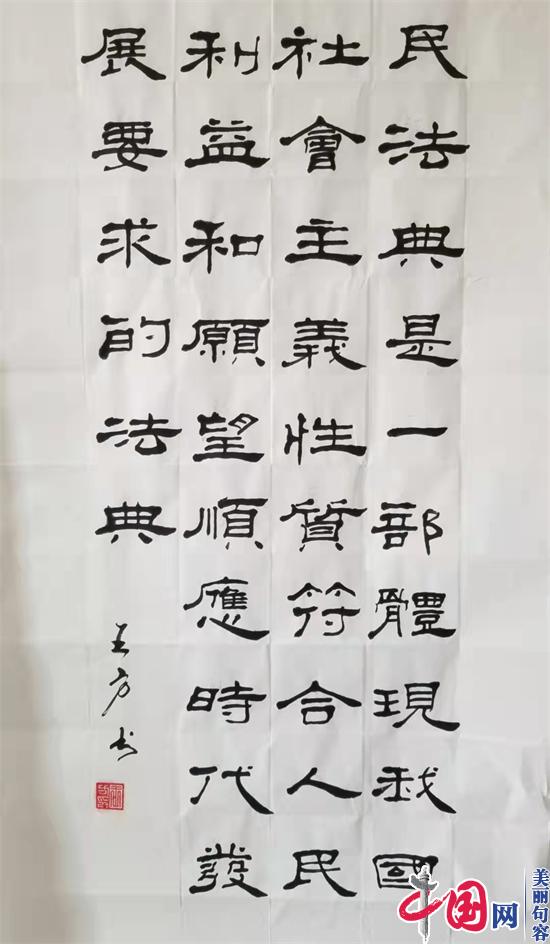 民法典是一部體現我國
社會主義性質符合人民
利益和願望順應時代發
展要求的法典
王方书
中国网
美丽句容